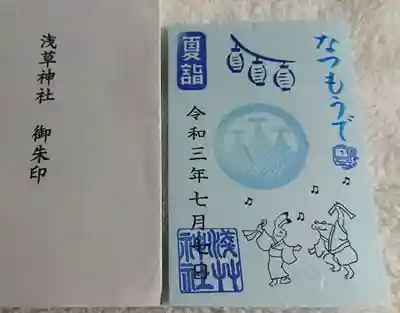 浅草神社 御朱印
なつもうで
夏詣
令和三年七月七日
浅草神社